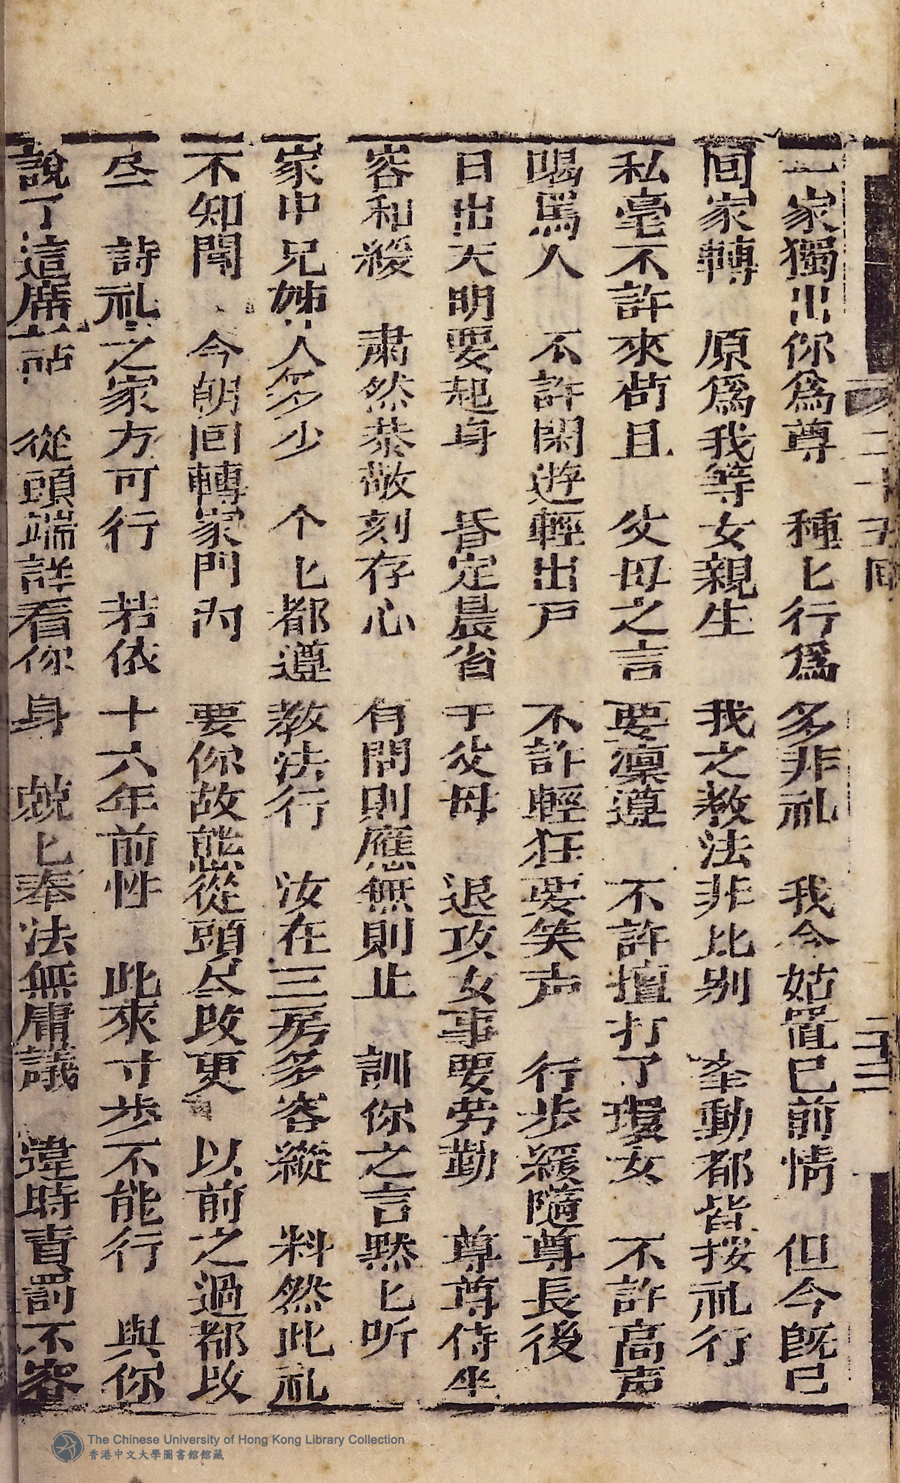 二十五回
二三
一家獨出你爲尊　種匕行爲多非礼　我今姑置已前情　但今旣已
回家轉　原爲我等女親生　我之教法非比别　牽動都皆按礼行
私毫不許來苟且　父母之言要凜遵　不許擅打了環女　不許高声
喝罵人　不許閑遊輕出戸　不許輕狂耍笑声　行步緩隨尊長後
日出天明要起身　昏定晨省于父母　退攻女事要劳勤　尊尊侍坐
容和緩　肅然恭敬刻存心　有問則應無則止　訓你之言黙匕听
家中兄姊人多少　个匕都遵教法行　汝在三房多容縱　料然此礼
不知聞　今朝回轉家門內　要你故態從頭尽改更　以前之過都改
尽　詩礼之家方可行　若依十六年前性　此來寸步不能行　與你
說了這席話　從頭端詳看你身　兢匕奉法無庸議　違時責罰不容
The Chinese University of Hong Kong Library Collection
香港中文大學圖書館館藏